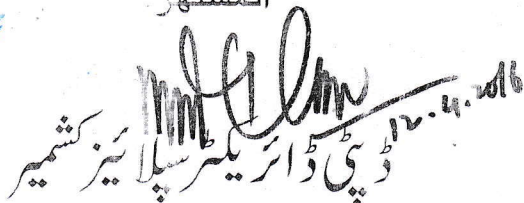 المشتہر
12.4.2016
ڈپٹی ڈائریکٹر سپلائیز کشمیر